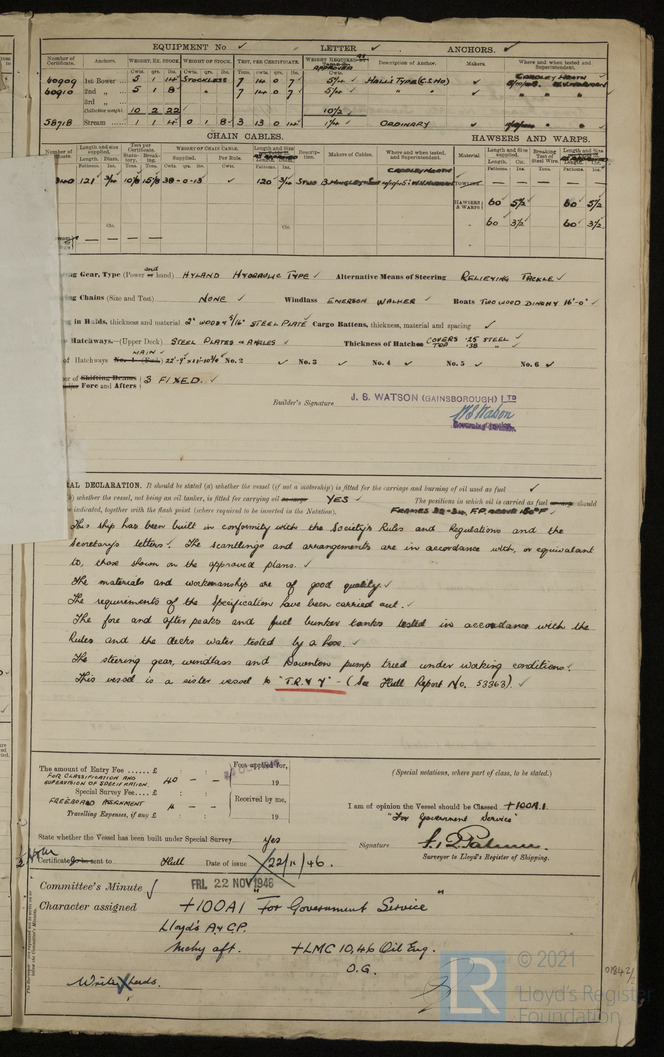 EQUIPMENT No ✓ LETTER ✓ ANCHORS. ✓
Number of Certificate. Anchors. WEIGHT, EX. STOCK. WEIGHT OF STOCK. TEST, PER CERTIFICATE. WEIGHT REQUIRED APPROVED Description of Anchor. Makers. Where and when tested and Superintendent.
Cwts. qrs. lbs. Cwts. qrs. lbs. Tons. cwts. qrs. lbs. Cwts.
60909 1st Bower 5 1 14 STOCKLESS 7 14 0 7 5 1/4 HALL'S TYPE (C.S.HD) ✓ CRADLEY HEATH
60910 2nd „ 5 1 8 " 7 14 0 7 5 1/4 " " ✓ " " "
3rd „
(Collective weight) 10 2 22 10 1/2
58718 Stream 1 1 4 0 1 8 3 13 0 14 1 1/4 ORDINARY ✓ " "
CHAIN CABLES. HAWSERS AND WARPS.
Number of Certificate. Length and size supplied. Test per Certificate. WEIGHT OF CHAIN CABLE. Length and Size Description. Makers of Cables. Where and when tested and Superintendent. Material Length and Size supplied. Breaking Test of Steel Wire. Length and Size
Fathoms. Diam. Statutory. Breaking. Supplied. Per Rule. Fathoms. Ins. Fathoms. Cir. Tons. Fathoms. Ins.
121 3/4 10 1/8 15 1/8 38-0-13 ✓ 120 3/4 STUD CRADLEY HEATH TOWLINE — — — — —
HAWSERS & WARPS 60 5 1/2 60 5 1/2
" 60 3 1/2 60 3 1/2
Gear, Type (Power and hand) HYLAND HYDRAULIC TYPE ✓ Alternative Means of Steering RELIEVING TACKLE ✓
Chains (Size and Test) NONE ✓ Windlass EMERSON WALKER ✓ Boats TWO WOOD DINGHY 16'-0" ✓
in Holds, thickness and material 2" WOOD & 5/16" STEEL PLATE Cargo Battens, thickness, material and spacing ✓
Hatchways.—(Upper Deck) STEEL PLATES & ANGLES ✓ Thickness of Hatches COVERS .25 STEEL ✓
TOP .38 " ✓
of Hatchways No. 1 (Fwd) MAIN ✓ 22'-9" x 11'-10 3/4" No. 2 ✓ No. 3 ✓ No. 4 ✓ No. 5 ✓ No. 6 ✓
of Shifting Beams
Fore and Afters } 3 FIXED. ✓
Builder's Signature J. S. WATSON (GAINSBOROUGH) LTD
W S Watson
DECLARATION. It should be stated (a) whether the vessel (if not a motorship) is fitted for the carriage and burning of oil used as fuel ✓
whether the vessel, not being an oil tanker, is fitted for carrying oil as cargo YES ✓ The positions in which oil is carried as fuel or cargo should
be indicated, together with the flash point (where required to be inserted in the Notation). FRAMES 32-34, F.P. ABOVE 150°F ✓
This ship has been built in conformity with the Society's Rules and Regulations and the
Secretary's letters ✓. The scantlings and arrangements are in accordance with, or equivalent
to, those shown on the approved plans. ✓
The materials and workmanship are of good quality. ✓
The requirements of the Specification have been carried out. ✓
The fore and after peaks and fuel bunker tanks tested in accordance with the
Rules and the decks water tested by a hose. ✓
The steering gear, windlass and Downton pump tried under working conditions. ✓
This vessel is a sister vessel to "T.R.V 7" - (See Hull Report No. 53363). ✓
The amount of Entry Fee ...... £ : : Fees applied for,
FOR CLASSIFICATION AND SUPERVISION OF SPECIFICATION 40 — — 19
Special Survey Fee.... £ : :
FREEBOARD ASSIGNMENT 4 — — Received by me,
Travelling Expenses, if any £ : : 19
(Special notations, where part of class, to be stated.)
I am of opinion the Vessel should be Classed +100A.1.
"For Government Service"
State whether the Vessel has been built under Special Survey Yes
Signature
Surveyor to Lloyd's Register of Shipping.
Certificate to be sent to Hull Date of issue 22/11/46.
Committee's Minute ✓ FRI. 22 NOV 1946
Character assigned +100A1 "For Government Service"
Lloyd's A & C.P.
Mchy aft. +LMC 10,46 Oil Eng.
O.G.
Write Leeds.
LR
© 2021
Lloyd's Register
Foundation